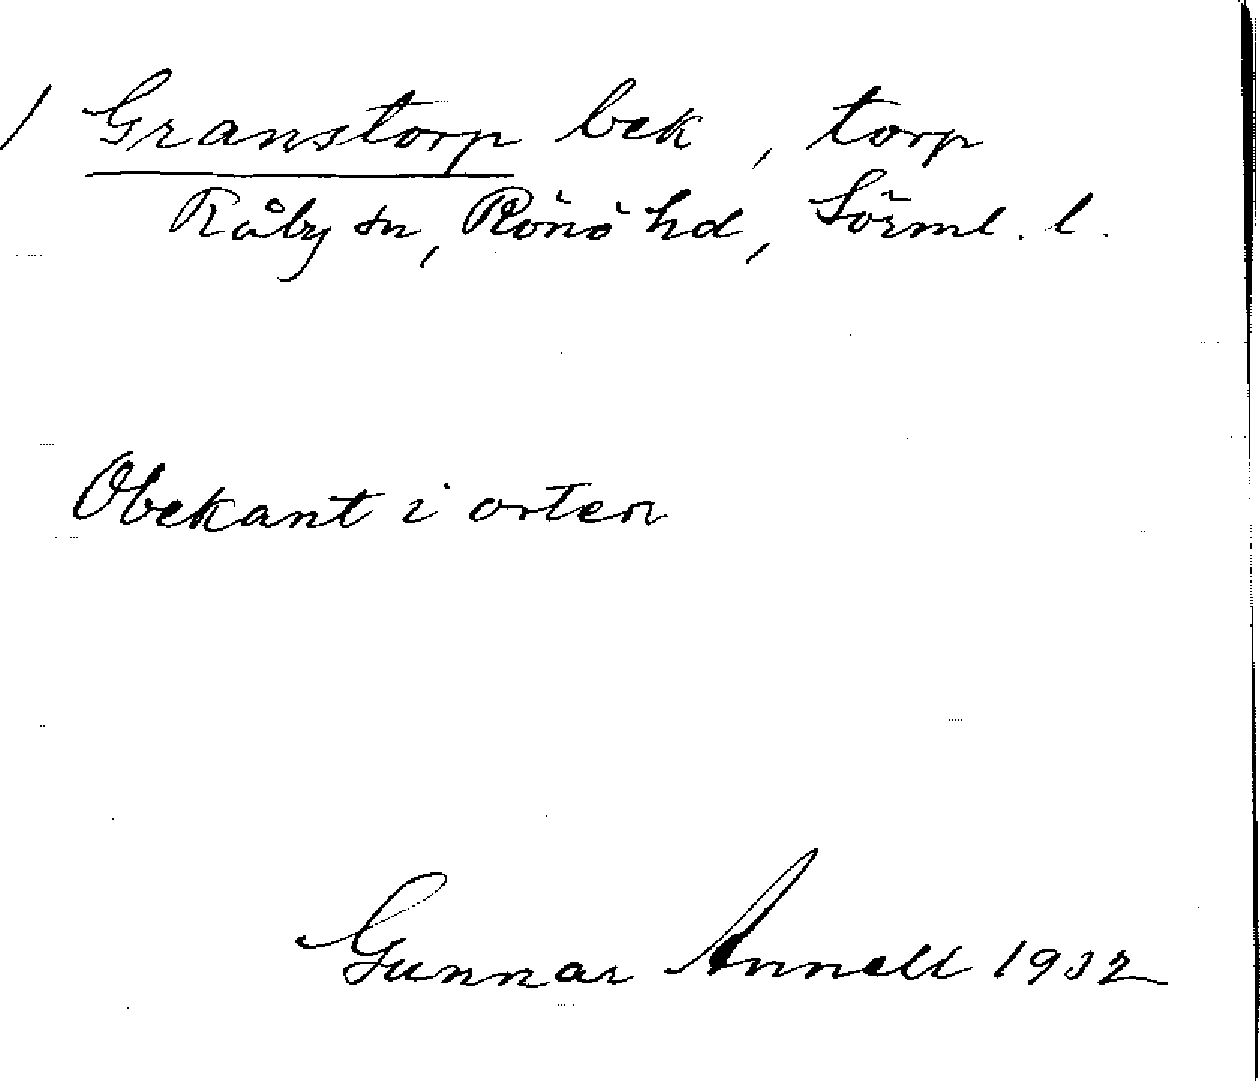 / Granstorp bek, torp
Råby sn, Rönö hd, Sörml. l.
Obekant i orten
Gunnar Annell 1932